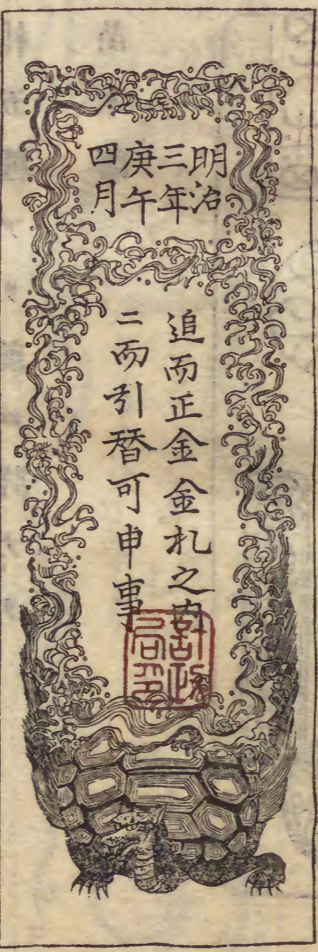 明治
三年
庚午
四月
追而正金金札之内
二而引替可申事